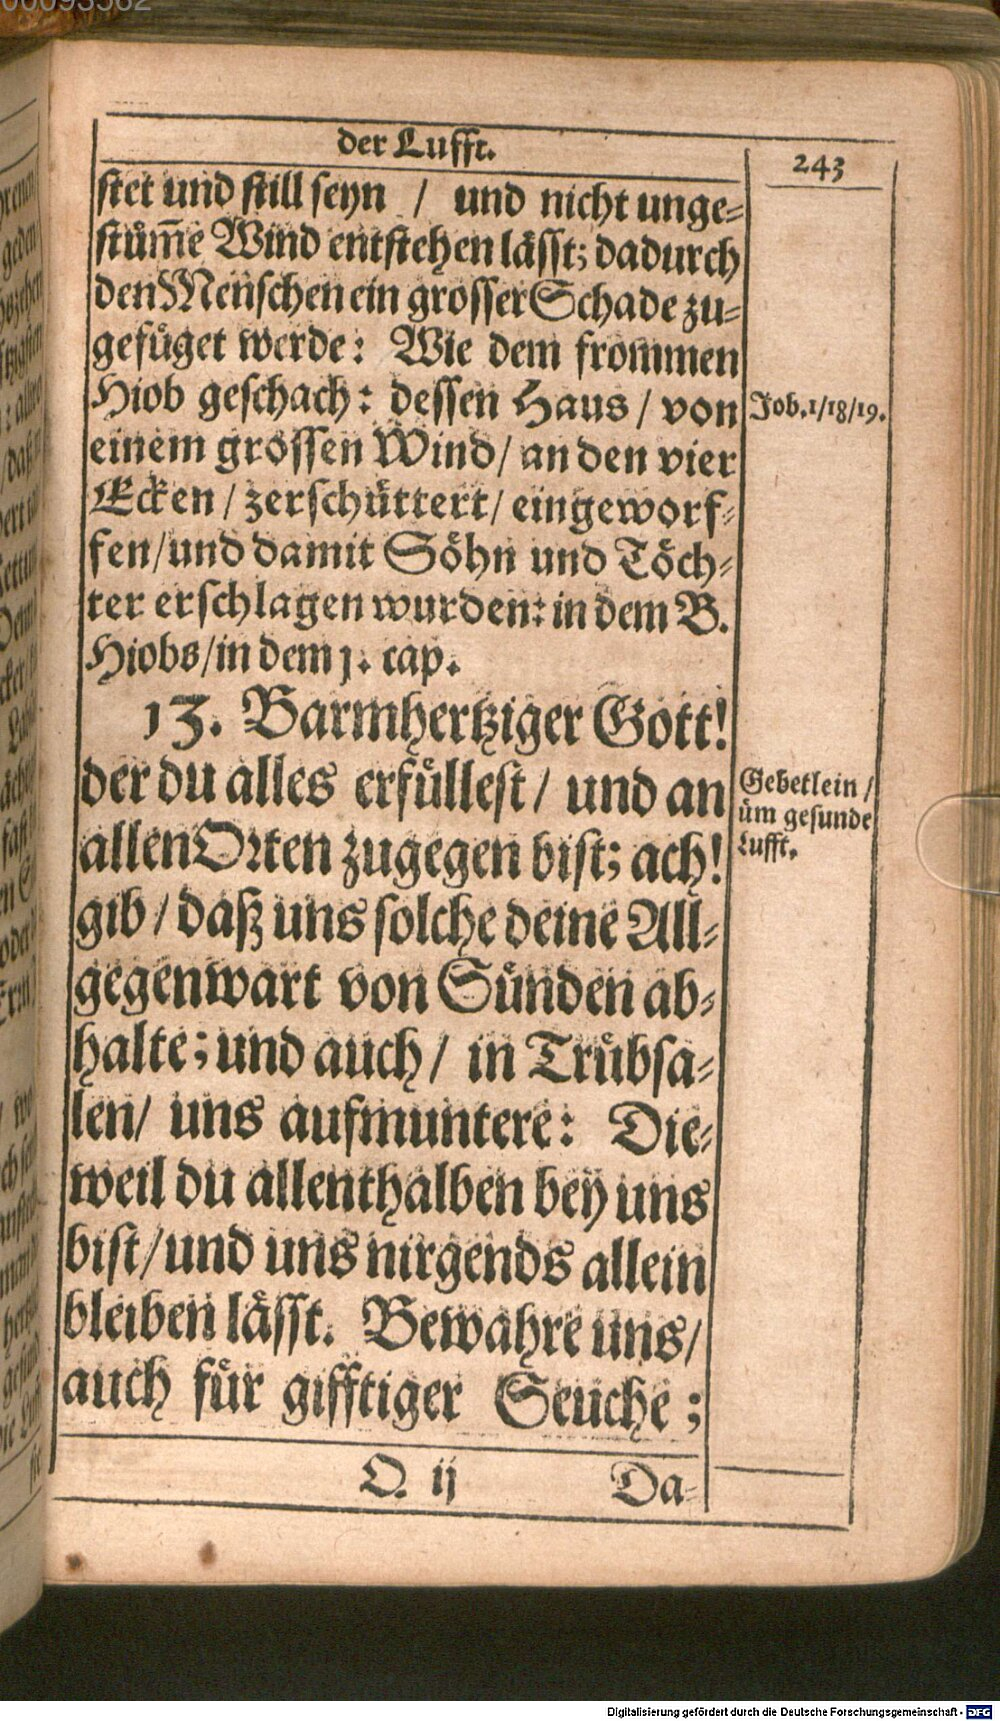 00093582
der Lufft.
243
stet und still seyn / und nicht unge-
stüm̃e Wind entstehen lässt; dadurch
den Menschen ein grosser Schade zu-
gefüget werde: Wie dem frommen
Hiob geschach: dessen Haus / von
Job.1/18/19.
einem grossen Wind / an den vier
Ecken / zerschüttert / eingeworf-
fen / und damit Söhn und Töch-
ter erschlagen wurden: in dem B.
Hiobs / in dem j. cap.
13. Barmhertziger Gott!
der du alles erfüllest / und an
Gebetlein /
üm gesunde
Lufft.
allen Orten zugegen bist; ach!
gib / daß uns solche deine All-
gegenwart von Sünden ab-
halte; und auch / in Trübsa-
len / uns aufmuntere: Die-
weil du allenthalben bey uns
bist / und uns nirgends allein
bleiben lässt. Bewahre uns /
auch für gifftiger Seuche;
Q. ij
Da-
Digitalisierung gefördert durch die Deutsche Forschungsgemeinschaft - DFG